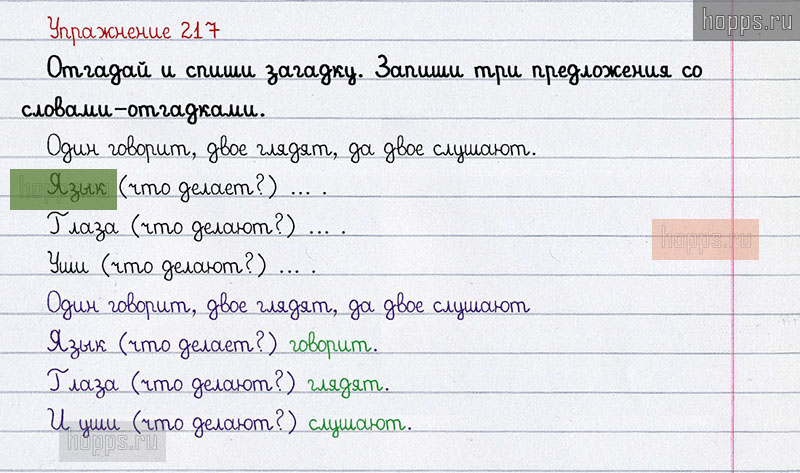 hopps.ru
Упражнение 217
Отгадай и спиши загадку. Запиши три предложения со
словами-отгадками.
Один говорит, двое глядят, да двое слушают.
Язык (что делает?) ... .
Глаза (что делают?) ... .
hopps.ru
Уши (что делают?) ... .
Один говорит, двое глядят, да двое слушают
Язык (что делает?) говорит.
Глаза (что делают?) глядят.
И уши (что делают?) слушают.
hopps.ru